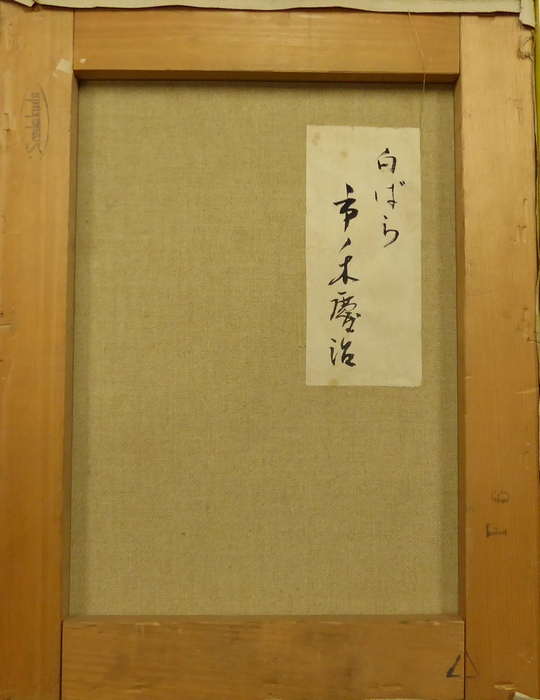 白ばら
市ノ木慶治
6
F